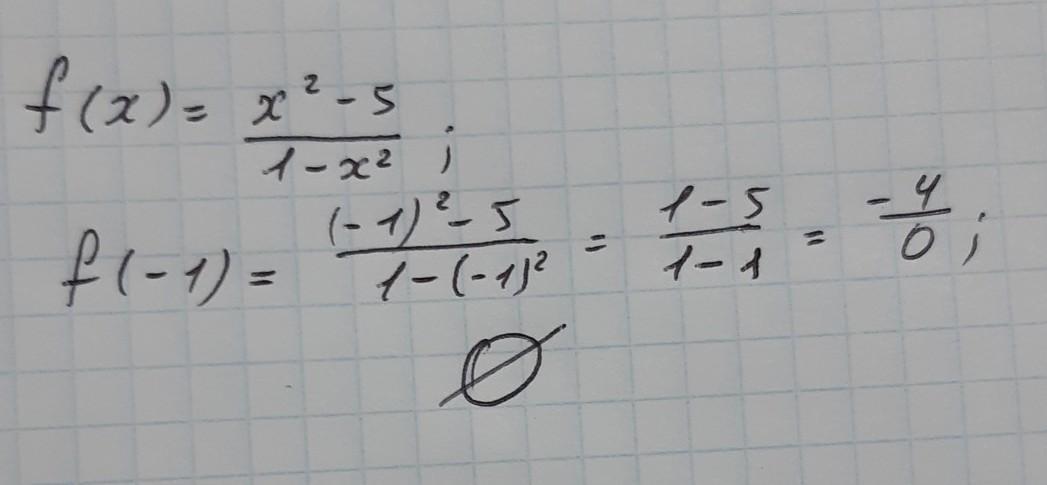 f(x) = (x² - 5)/(1 - x²) ;
f(-1) = ((-1)² - 5)/(1 - (-1)²) = (1 - 5)/(1 - 1) = (-4)/0 ;
∅